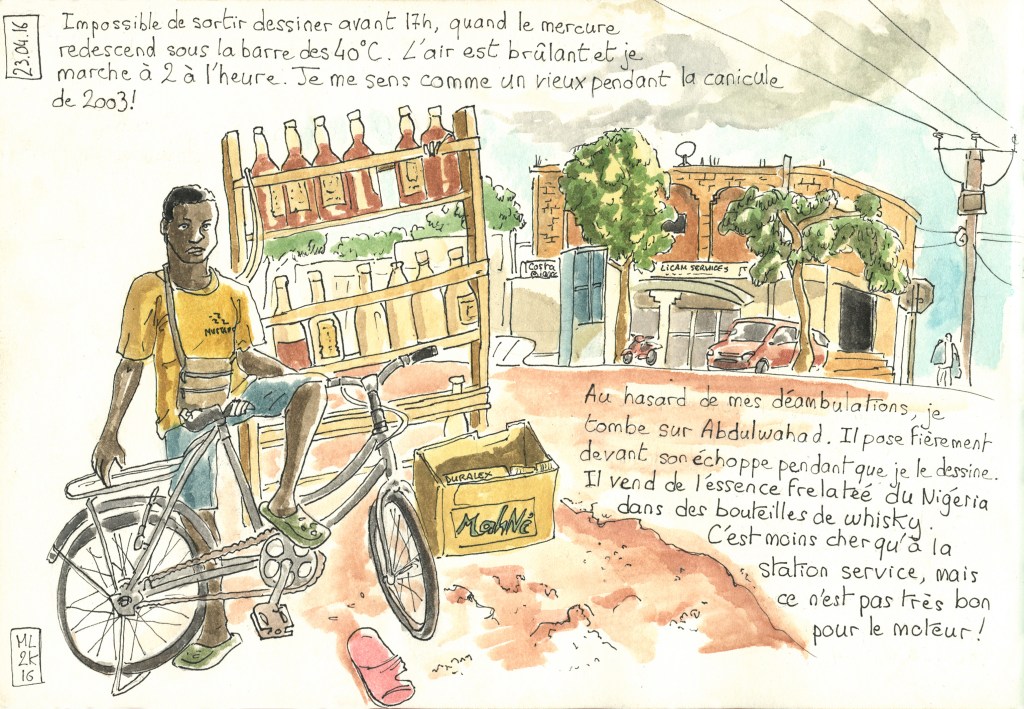 23.04.16
Impossible de sortir dessiner avant 17h, quand le mercure
redescend sous la barre des 40°C. L'air est brûlant et je
marche à 2 à l'heure. Je me sens comme un vieux pendant la canicule
de 2003!
Costa
LICAM SERVICES
DURALEX
Au hasard de mes déambulations, je
tombe sur Abdulwahad. Il pose fièrement
devant son échoppe pendant que je le dessine.
Il vend de l'essence frelatée du Nigéria
dans des bouteilles de whisky.
C'est moins cher qu'à la
station service, mais
ce n'est pas très bon
pour le moteur!
ML
2K
16